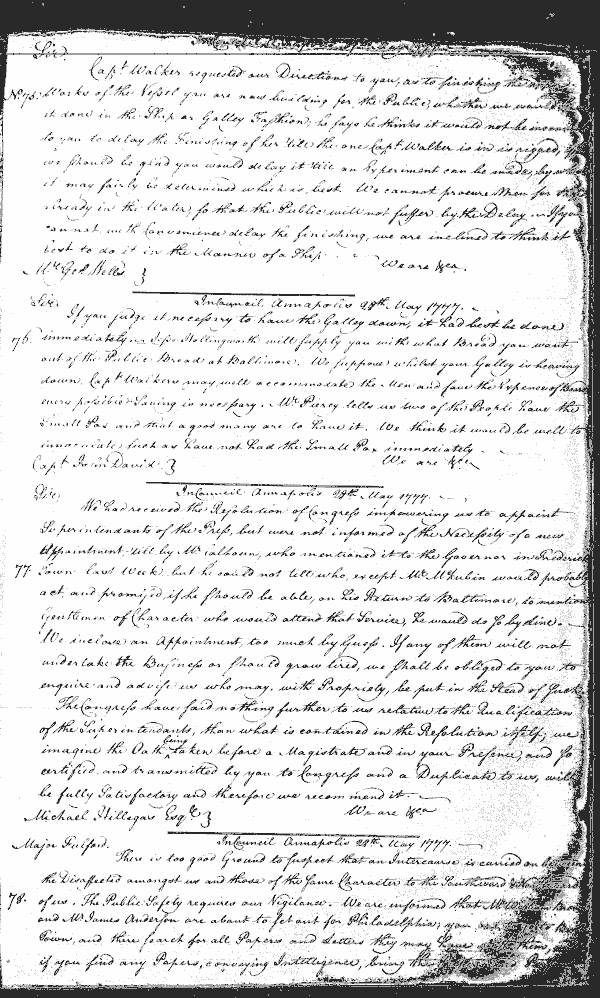 Sir.
Capt. Walker requested our Directions to you, as to finishing the
No. 75. Works of the Vessel you are now building for the Public, whether we would
it done in the Ship or Galley Fashion; he says he thinks it would not be
to you to delay the Finishing of her 'till the one Capt. Walker is in is rigged,
we should be glad you would delay it 'till an Experiment can be made,
it may fairly be determined which is best. We cannot procure Men for
already in the Water, so that the Public will not suffer by the Delay. If you
cannot with Convenience delay the finishing, we are inclined to think it
best to do it in the Manner of a Ship.
We are &ca.
Mr. Geo. Wells }
In Council Annapolis 28th. May 1777.
Sir.
If you judge it necessry to have the Galley down, it had best be done
76. immediately. Jesse Hollingsworth will supply you with what Bread you want
out of the Public Bread at Baltimore. We suppose whilst your Galley is heaving
down, Capt. Walkers may well accommodate the Men and save the Expence of
every possible Saving is necessary. Mr. Piercy tells us two of the People have the
Small Pox and that a good many are to have it. We think it would be well to
innoculate such as have not had the Small Pox immediately.
We are &ca
Capt. John David }
In Council Annapolis 28th. May 1777.
Sir.
We had received the Resolution of Congress impowering us to appoint
Superintendants of the Press, but were not informed of the Necessity of a new
Appointment, till by Mr. Calhoun, who mentioned it to the Governor in Frederick
77. Town last Week, but he could not tell who, except Mr. McKubin would probably
act, and promised, if he should be able, on his Return to Baltimore, to mention
Gentlemen of Character who would attend that Service, he would do so by
We inclose an Appointment, too much by Guess. If any of them will not
undertake the Business or should grow tired, we shall be obliged to you to
enquire and advise us who may, with Propriety, be put in the Stead of such.
The Congress have said nothing further to us relative to the Qualification
of the Superintendants, than what is contained in the Resolution itself; we
imagine the Oath being taken before a Magistrate and in your Presence, and so
certified, and transmitted by you to Congress and a Duplicate to us, will
be fully Satisfactory and therefore we recommend it.
We are &ca
Michael Hillegas Esqr. }
In Council Annapolis 28th. May 1777.
Major Fulford.
There is too good Ground to suspect that an Intercourse is carried on
the Disaffected amongst us and those of the same Character to the Southward
78. of us. The Public Safety requires our Vigilance. We are informed that
and Mr. James Anderson are about to set out for Philadelphia; you
Town, and there search for all Papers and Letters they may have
if you find any Papers, conveying Intelligence, bring